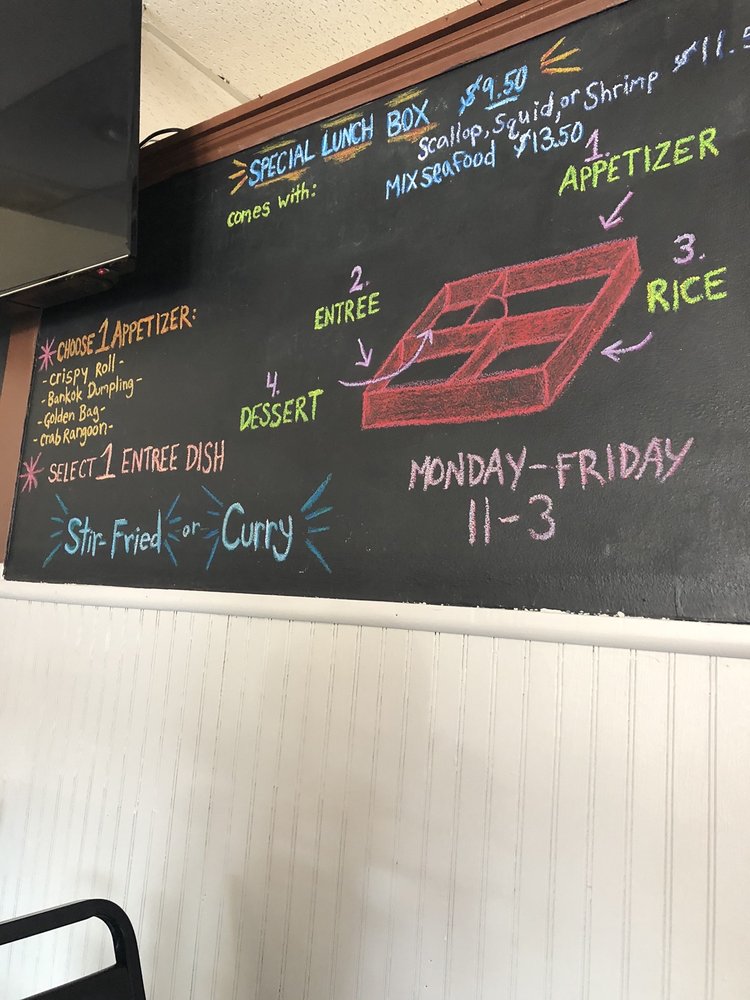 SPECIAL LUNCH BOX $9.50
Scallop, Squid, or Shrimp $11.5
MIX seafood $13.50
comes with:
1.
APPETIZER
2.
ENTREE
3.
RICE
4.
DESSERT
CHOOSE 1 APPETIZER:
- Crispy Roll -
- Bankok Dumpling -
- Golden Bag -
- Crab Rangoon -
SELECT 1 ENTREE DISH
Stir-Fried or Curry
MONDAY-FRIDAY
11-3